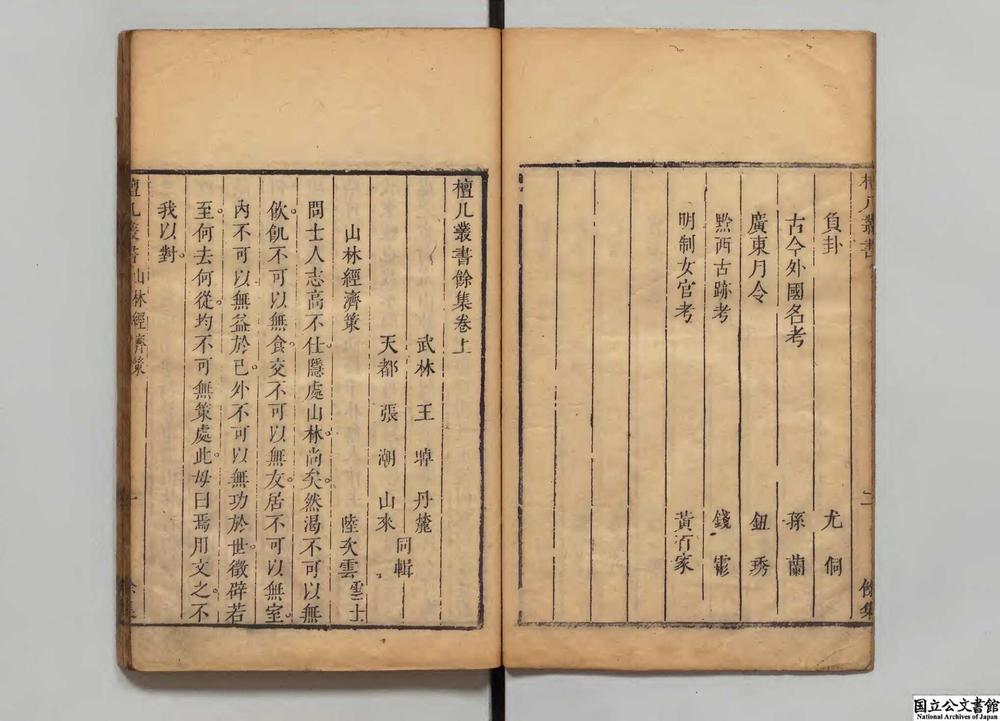 檀几叢書
二
餘集
負卦 尤侗
古今外國名考 孫蘭
廣東月令 鈕琇
黔西古跡考 錢霦
明制女官考 黃百家
檀几叢書餘集卷上
武林 王晫 丹麓
天都 張潮 山來 同輯
山林經濟策 陸次雲 雲士
問士人志高不仕隱處山林尚矣然渴不可以無
飲飢不可以無食交不可以無友居不可以無室
內不可以無益於己外不可以無功於世徵辟若
至何去何從均不可無策處此毋曰焉用文之不
我以對
檀几叢書 山林經濟策
一
餘集
国立公文書館
National Archives of Japan